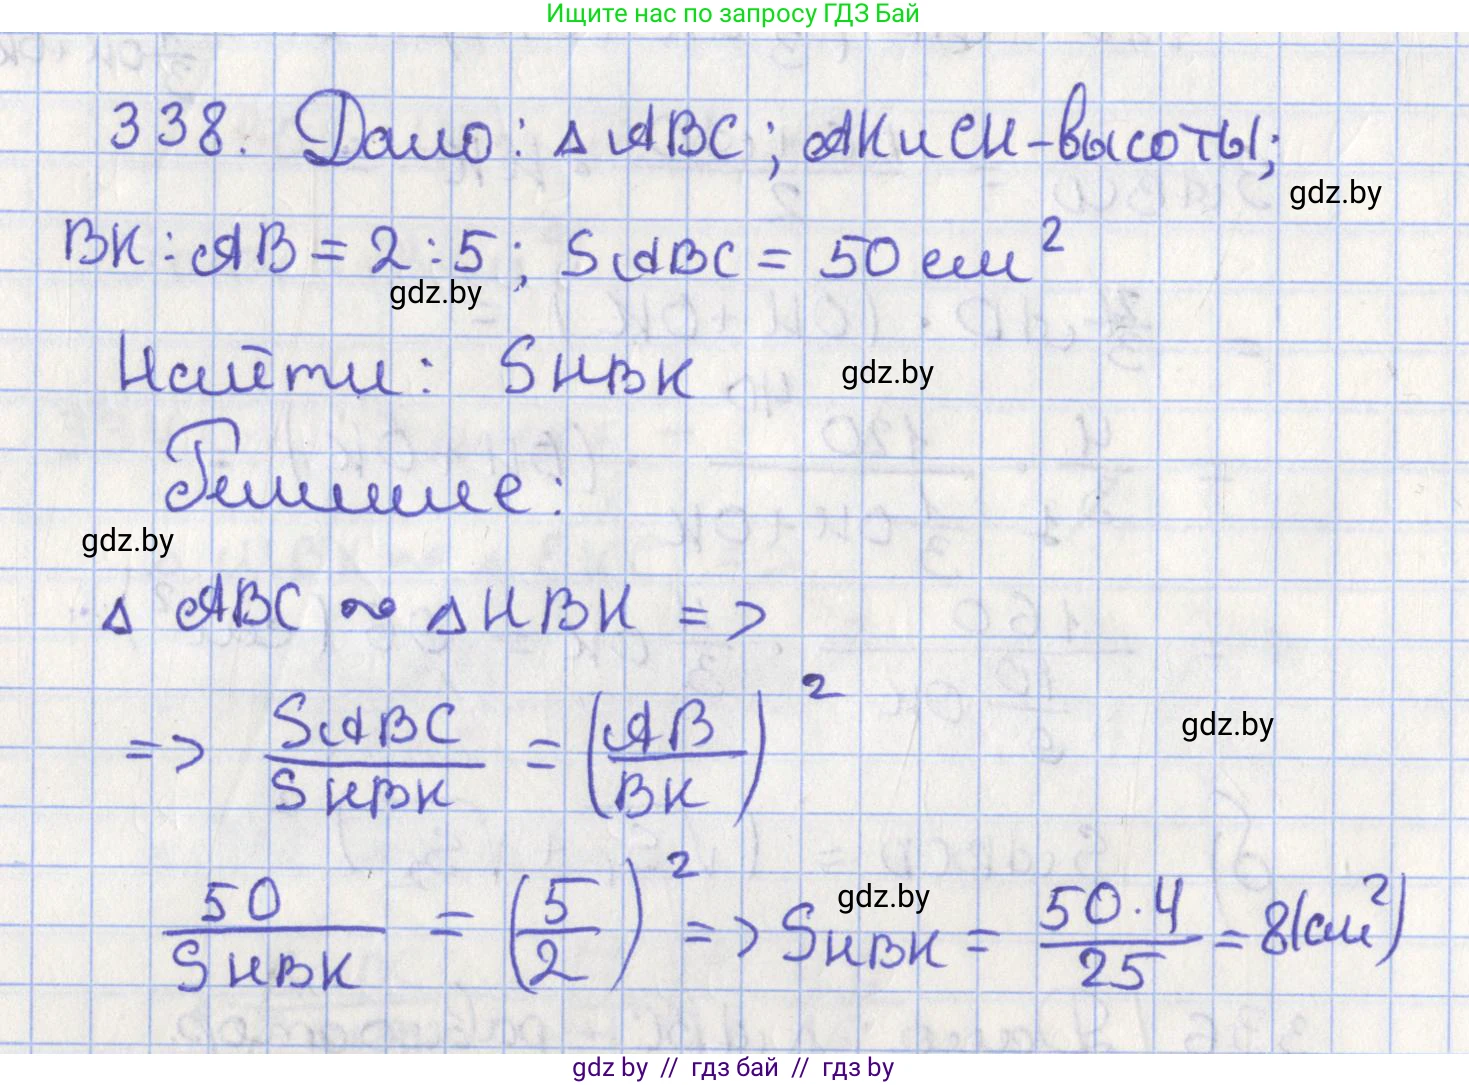 Ищите нас по запросу ГДЗ Бай
338. Дано: △ABC; AK и CH - высоты;
gdz.by
BK : AB = 2 : 5; SABC = 50 см²
gdz.by
Найти: SHBK
gdz.by
Решение:
gdz.by
△ ABC ~ △HBK =>
=> SABC/SHBK = (AB/BK)²
gdz.by
50/SHBK = (5/2)² => SHBK = 50·4/25 = 8(см²)
gdz.by
gdz by // гдз бай // гдз by